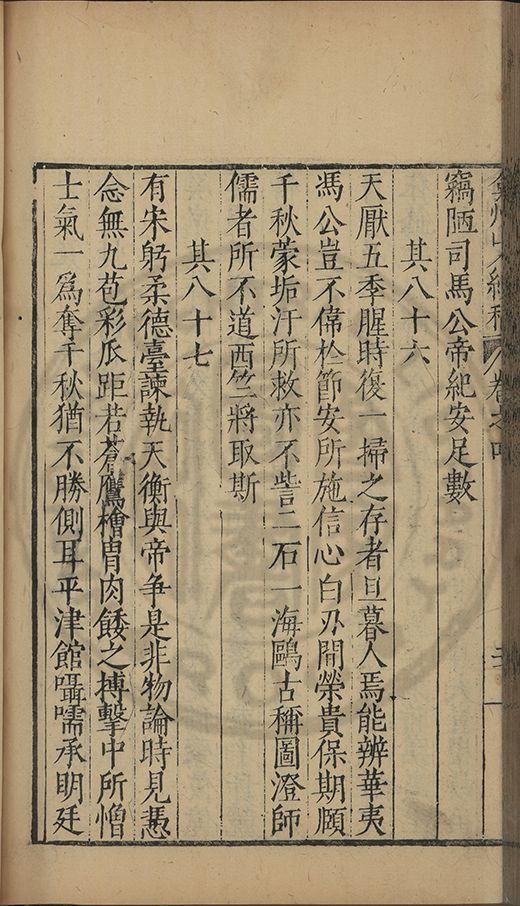 弇州山人續稿 卷之四
竊陋司馬公帝紀安足數
其八十六
天厭五季腥時復一掃之存者旦暮人焉能辨華夷
馮公豈不偉於節安所施信心白刃間榮貴保期頤
千秋蒙垢汙所救亦不訾二石一海鷗古稱圖澄師
儒者所不道西竺將取斯
其八十七
有宋躬柔德臺諫執天衡與帝爭是非物論時見慿
念無九苞彩瓜距若蒼鷹檜胃肉餧之搏擊中所憎
士氣一爲奪千秋猶不勝側耳平津館囁嚅承明廷